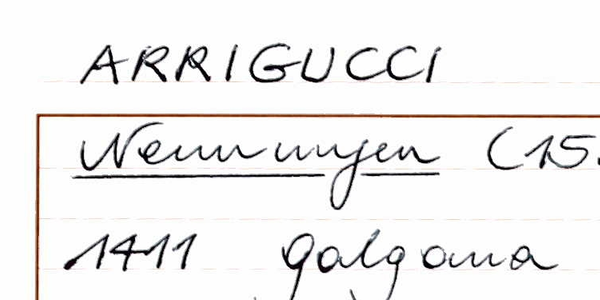 ARRIGUCCI
Nennungen (15.
1411 Galgana